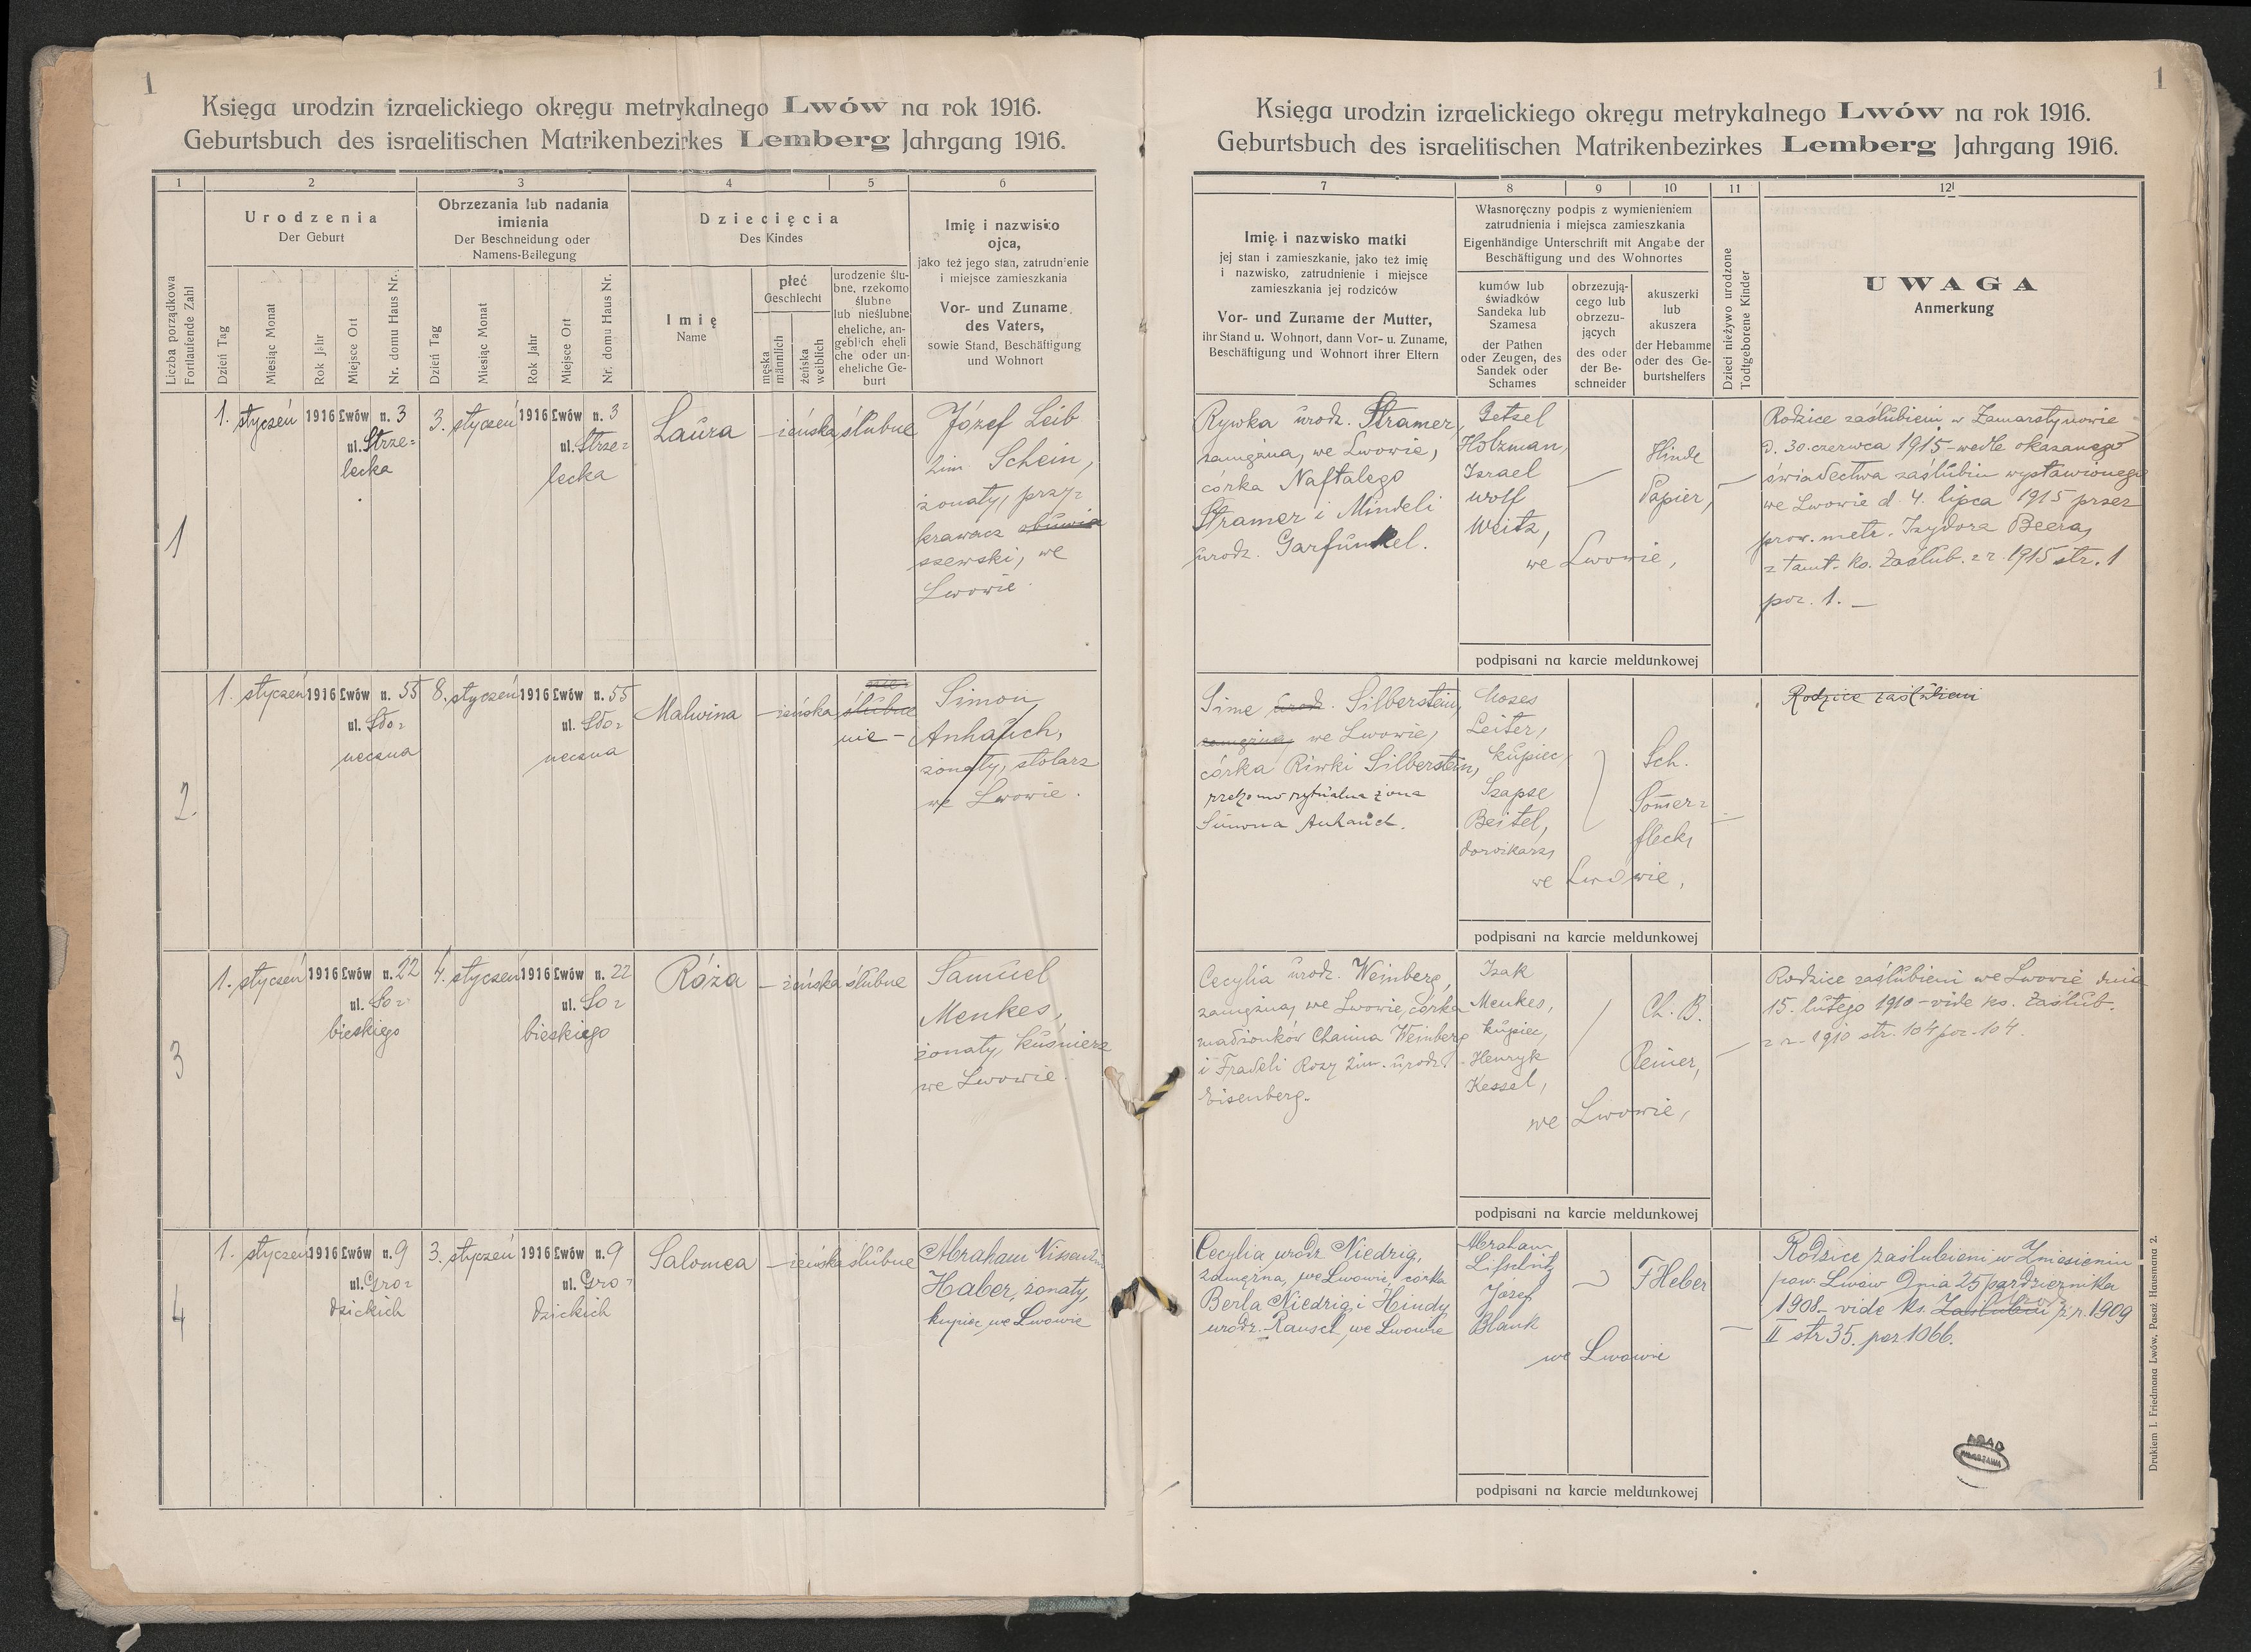 1
Księga urodzin izraelickiego okręgu metrykalnego Lwów na rok 1916.
Geburtsbuch des israelitischen Matrikenbezirkes Lemberg Jahrgang 1916.
1
2
3
4
5
6
Liczba porządkowa
Fortlaufende Zahl
Urodzenia
Der Geburt
Obrzezania lub nadania
imienia
Der Beschneidung oder
Namens-Beilegung
Dziecięcia
Des Kindes
Imię i nazwisko
ojca,
jako też jego stan, zatrudnienie
i miejsce zamieszkania
Vor- und Zuname
des Vaters,
sowie Stand, Beschäftigung
und Wohnort
Dzień Tag
Miesiąc Monat
Rok Jahr
Miejsce Ort
Nr. domu Haus Nr.
Dzień Tag
Miesiąc Monat
Rok Jahr
Miejsce Ort
Nr. domu Haus Nr.
Imię
Name
płeć
Geschlecht
męska
männlich
żeńska
weiblich
urodzenie ślu-
bne, rzekomo
ślubne
lub nieślubne
eheliche, an-
geblich eheli
che oder un-
eheliche Ge-
burt
1
1. styczeń 1916 Lwów n. 3
ul. Strze=
lecka
3. styczeń 1916 Lwów n. 3
ul. Strze=
lecka
Laura
— żeńska ślubne
Józef Leib
2im Schein,
żonaty, przy=
krawacz obuwia
szewski, we
Lwowie.
2.
1. styczeń 1916 Lwów n. 55
ul. Sło=
neczna
8. styczeń 1916 Lwów n. 55
ul. Sło=
neczna
Malwina
— żeńska
nie
ślubne
nie -
Simon
Anhauch,
żonaty, stolarz
we Lwowie.
3
1. styczeń 1916 Lwów n. 22
ul. So=
bieskiego
4. styczeń 1916 Lwów n. 22
ul. So=
bieskiego
Róża
— żeńska ślubne
Samuel
Menkes,
żonaty, kuśnierz
we Lwowie.
4
1. styczeń 1916 Lwów n. 9
ul. Gro=
dzickich
3. styczeń 1916 Lwów n. 9
ul. Gro=
dzickich
Salomea
— żeńska ślubne
Abraham Nissen 2im
Haber, żonaty,
kupiec we Lwowie
1
Księga urodzin izraelickiego okręgu metrykalnego Lwów na rok 1916.
Geburtsbuch des israelitischen Matrikenbezirkes Lemberg Jahrgang 1916.
7
8
9
10
11
12
Imię i nazwisko matki
jej stan i zamieszkanie, jako też imię
i nazwisko, zatrudnienie i miejsce
zamieszkania jej rodziców
Vor- und Zuname der Mutter,
ihr Stand u. Wohnort, dann Vor- u. Zuname,
Beschäftigung und Wohnort ihrer Eltern
Własnoręczny podpis z wymienieniem
zatrudnienia i miejsca zamieszkania
Eigenhändige Unterschrift mit Angabe der
Beschäftigung und des Wohnortes
kumów lub
świadków
Sandeka lub
Szamesa
der Pathen
oder Zeugen, des
Sandek oder
Schames
obrzezują-
cego lub
obrzezu-
jących
des oder
der Be-
schneider
akuszerki
lub
akuszera
der Hebamme
oder des Ge-
burtshelfers
Dzieci nieżywo urodzone
Todtgeborene Kinder
UWAGA
Anmerkung
Rywka urodz. Stramer,
zamężna, we Lwowie,
córka Naftalego
Stramer i Mindeli
urodz. Garfunkel.
Getzel
Holzman,
Izrael
Wolf
Weitz,
we Lwowie,
Hinde
Papier,
podpisani na karcie meldunkowej
Rodzice zaślubieni w Zamarstynowie
d. 30. czerwca 1915 - wedle okazanego
świadectwa zaślubin wystawionego
we Lwowie d. 4. lipca 1915 przez
prow. metr. Izydora Beera,
z tamt. ks. zaślub. z r. 1915 str. 1
poz. 1. —
Sime urodz. Silberstein,
zamężna, we Lwowie,
córka Riwki Silberstein,
rzekomo rytualna żona
Simona Anhauch.
Moses
Leiter,
kupiec,
Szapse
Beitel,
we Lwowie,
Sch.
Somer=
fleck,
podpisani na karcie meldunkowej
Rodzice zaślubieni
Cecylia urodz. Weinberg,
zamężna, we Lwowie, córka
małżonków Chaima Weinberg
i Fradeli Rozy 2im. urodz.
Eisenberg.
Izak
Menkes,
kupiec,
Henryk
Kessel,
we Lwowie,
Ch. B.
Reiner,
podpisani na karcie meldunkowej
Rodzice zaślubieni we Lwowie dnia
15. lutego 1910 - vide ks. zaślub.
z r. 1910 str. 104 poz. 104.
Cecylia urodz. Niedrig,
zamężna, we Lwowie, córka
Berla Niedrig i Hindy
urodz. Rausch, we Lwowie
Abraham
Lifschütz
Józef
Blank
we Lwowie
F Heber
podpisani na karcie meldunkowej
Rodzice zaślubieni w Zniesieniu
pow. Lwów dnia 25 października
1908 - vide ks. zaślubin z r. 1909
II str 35. poz 1066.
AGAD
WARSZAWA
Drukiem I. Friedmana Lwów, Pasaż Hausmana 2.